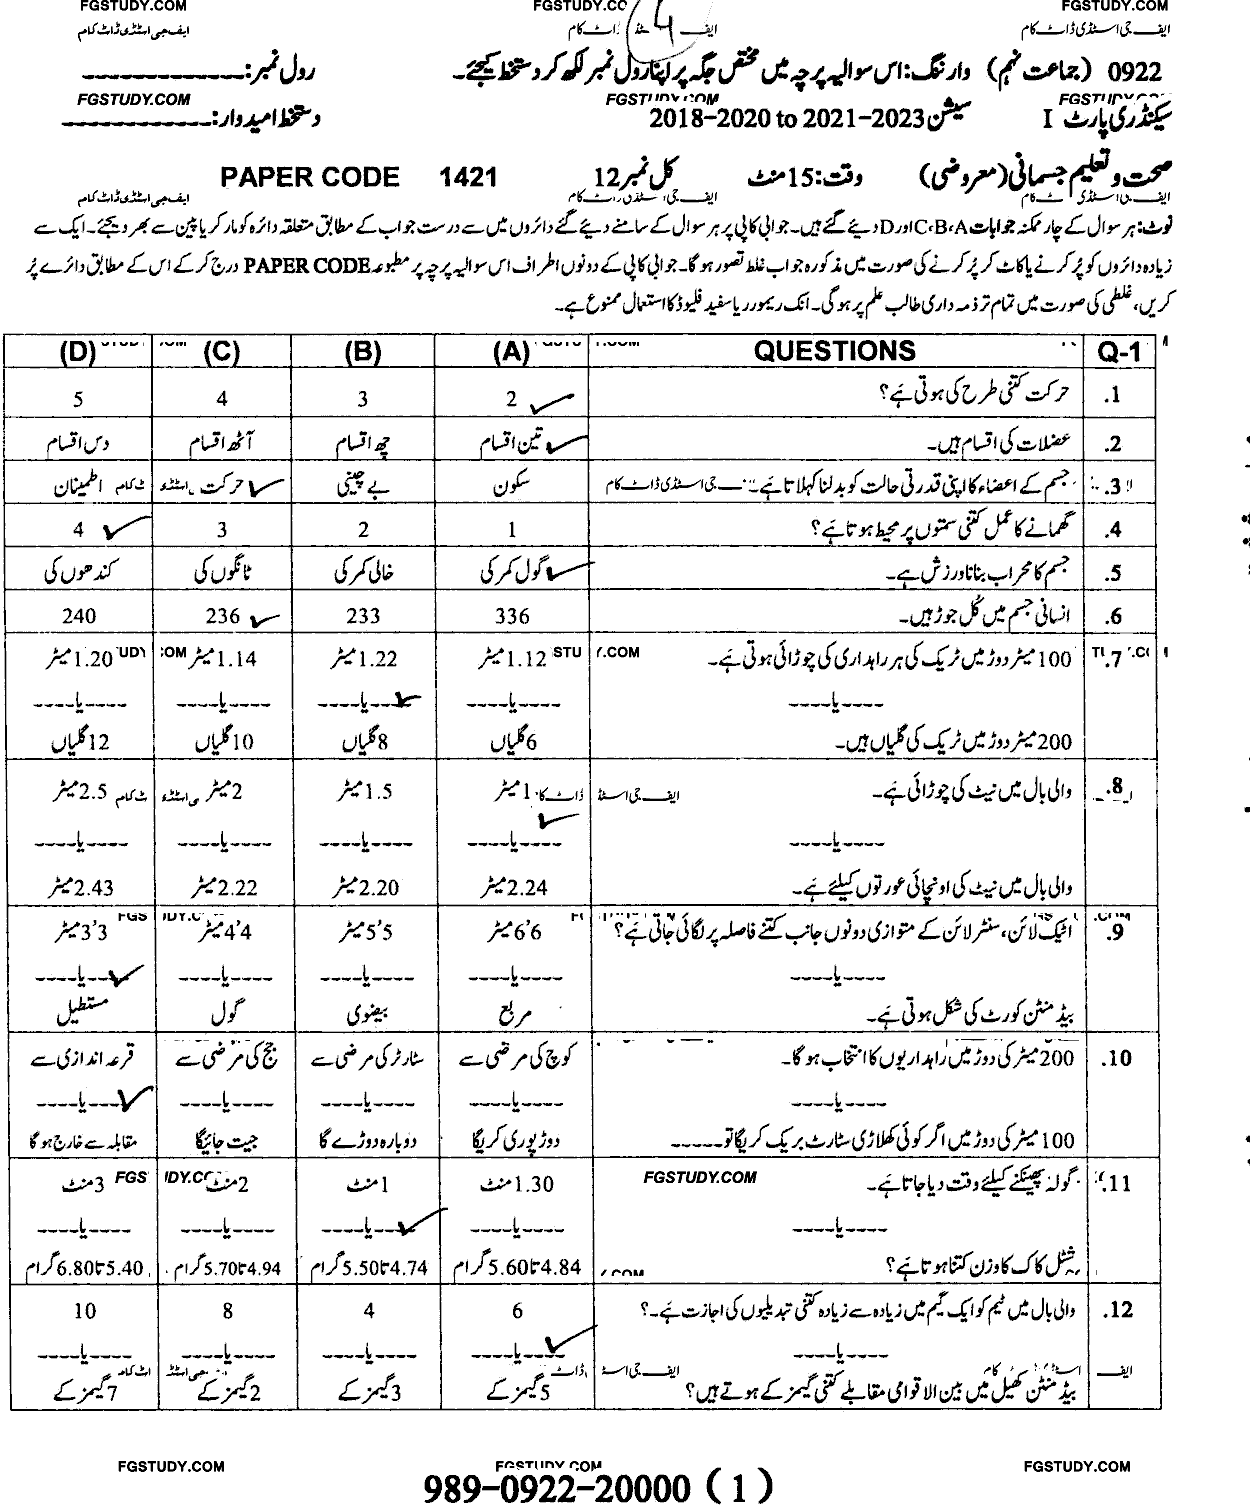 FGSTUDY.COM FGSTUDY.CO FGSTUDY.COM
ایف جی اسٹڈی ڈاٹ کام
4
0922 (جماعت نہم) وارننگ: اس سوالیہ پرچہ میں مختص جگہ پر اپنا رول نمبر لکھ کر دستخط کیجئے۔ رول نمبر:
FGSTUDY.COM FGSTUDY.COM
سیکنڈری پارٹ I سیشن 2018-2020 to 2021-2023 دستخط امیدوار:
صحت و تعلیم جسمانی (معروضی) وقت: 15 منٹ کل نمبر 12 PAPER CODE 1421
نوٹ: ہر سوال کے چار ممکنہ جوابات C،B،A اور D دیئے گئے ہیں۔ جوابی کاپی پر ہر سوال کے سامنے دیئے گئے دائروں میں سے درست جواب کے مطابق متعلقہ دائرہ کو مارکر یا پین سے بھر دیجئے۔ ایک سے
زیادہ دائروں کو پُر کرنے یا کاٹ کر پُر کرنے کی صورت میں مذکورہ جواب غلط تصور ہو گا۔ جوابی کاپی کے دونوں اطراف اس سوالیہ پرچہ پر مطبوعہ PAPER CODE درج کر کے اس کے مطابق دائرے پُر
کریں، غلطی کی صورت میں تمام تر ذمہ داری طالب علم پر ہو گی۔ انک ریمور ر یا سفید فلیوڈ کا استعمال ممنوع ہے۔
Q-1 QUESTIONS (A) (B) (C) (D)
1. حرکت کتنی طرح کی ہوتی ہے؟ 2 3 4 5
2. عضلات کی اقسام ہیں۔ تین اقسام چھ اقسام آٹھ اقسام دس اقسام
3. جسم کے اعضاء کا اپنی قدرتی حالت کو بدلنا کہلاتا ہے۔ سکون بے چینی حرکت اطمینان
4. گھمانے کا عمل کتنی سمتوں پر محیط ہوتا ہے؟ 1 2 3 4
5. جسم کا محراب بنانا ورزش ہے۔ گول کمر کی خالی کمر کی ٹانگوں کی کندھوں کی
6. انسانی جسم میں کُل جوڑ ہیں۔ 336 233 236 240
7. 100 میٹر دوڑ میں ٹریک کی ہر راہداری کی چوڑائی ہوتی ہے۔ 1.12 میٹر 1.22 میٹر 1.14 میٹر 1.20 میٹر
----یا---- ----یا---- ----یا---- ----یا---- ----یا----
200 میٹر دوڑ میں ٹریک کی گلیاں ہیں۔ 6 گلیاں 8 گلیاں 10 گلیاں 12 گلیاں
8. والی بال میں نیٹ کی چوڑائی ہے۔ 1 میٹر 1.5 میٹر 2 میٹر 2.5 میٹر
----یا---- ----یا---- ----یا---- ----یا---- ----یا----
والی بال میں نیٹ کی اونچائی عورتوں کیلئے ہے۔ 2.24 میٹر 2.20 میٹر 2.22 میٹر 2.43 میٹر
9. اٹیک لائن، سنٹر لائن کے متوازی دونوں جانب کتنے فاصلہ پر لگائی جاتی ہے؟ 6'6 میٹر 5'5 میٹر 4'4 میٹر 3'3 میٹر
----یا---- ----یا---- ----یا---- ----یا---- ----یا----
بیڈ منٹن کورٹ کی شکل ہوتی ہے۔ مربع بیضوی گول مستطیل
10. 200 میٹر کی دوڑ میں راہداریوں کا انتخاب ہو گا۔ کوچ کی مرضی سے سٹارٹر کی مرضی سے جج کی مرضی سے قرعہ اندازی سے
----یا---- ----یا---- ----یا---- ----یا---- ----یا----
100 میٹر کی دوڑ میں اگر کوئی کھلاڑی سٹارٹ بریک کریگا تو------ دوڑ پوری کریگا دوبارہ دوڑے گا جیت جائیگا مقابلہ سے خارج ہو گا
11. گولہ پھینکنے کیلئے وقت دیا جاتا ہے۔ FGSTUDY.COM 1.30 منٹ 1 منٹ 2 منٹ 3 منٹ
----یا---- ----یا---- ----یا---- ----یا---- ----یا----
شٹل کاک کا وزن کتنا ہوتا ہے؟ 4.84 تا 5.60 گرام 4.74 تا 5.50 گرام 4.94 تا 5.70 گرام 5.40 تا 6.80 گرام
12. والی بال میں ٹیم کو ایک گیم میں زیادہ سے زیادہ کتنی تبدیلیوں کی اجازت ہے۔؟ 6 4 8 10
----یا---- ----یا---- ----یا---- ----یا---- ----یا----
بیڈ منٹن کھیل میں بین الاقوامی مقابلے کتنی گیمز کے ہوتے ہیں؟ 5 گیمز کے 3 گیمز کے 2 گیمز کے 7 گیمز کے
FGSTUDY.COM FGSTUDY.COM FGSTUDY.COM
989-0922-20000 (1)